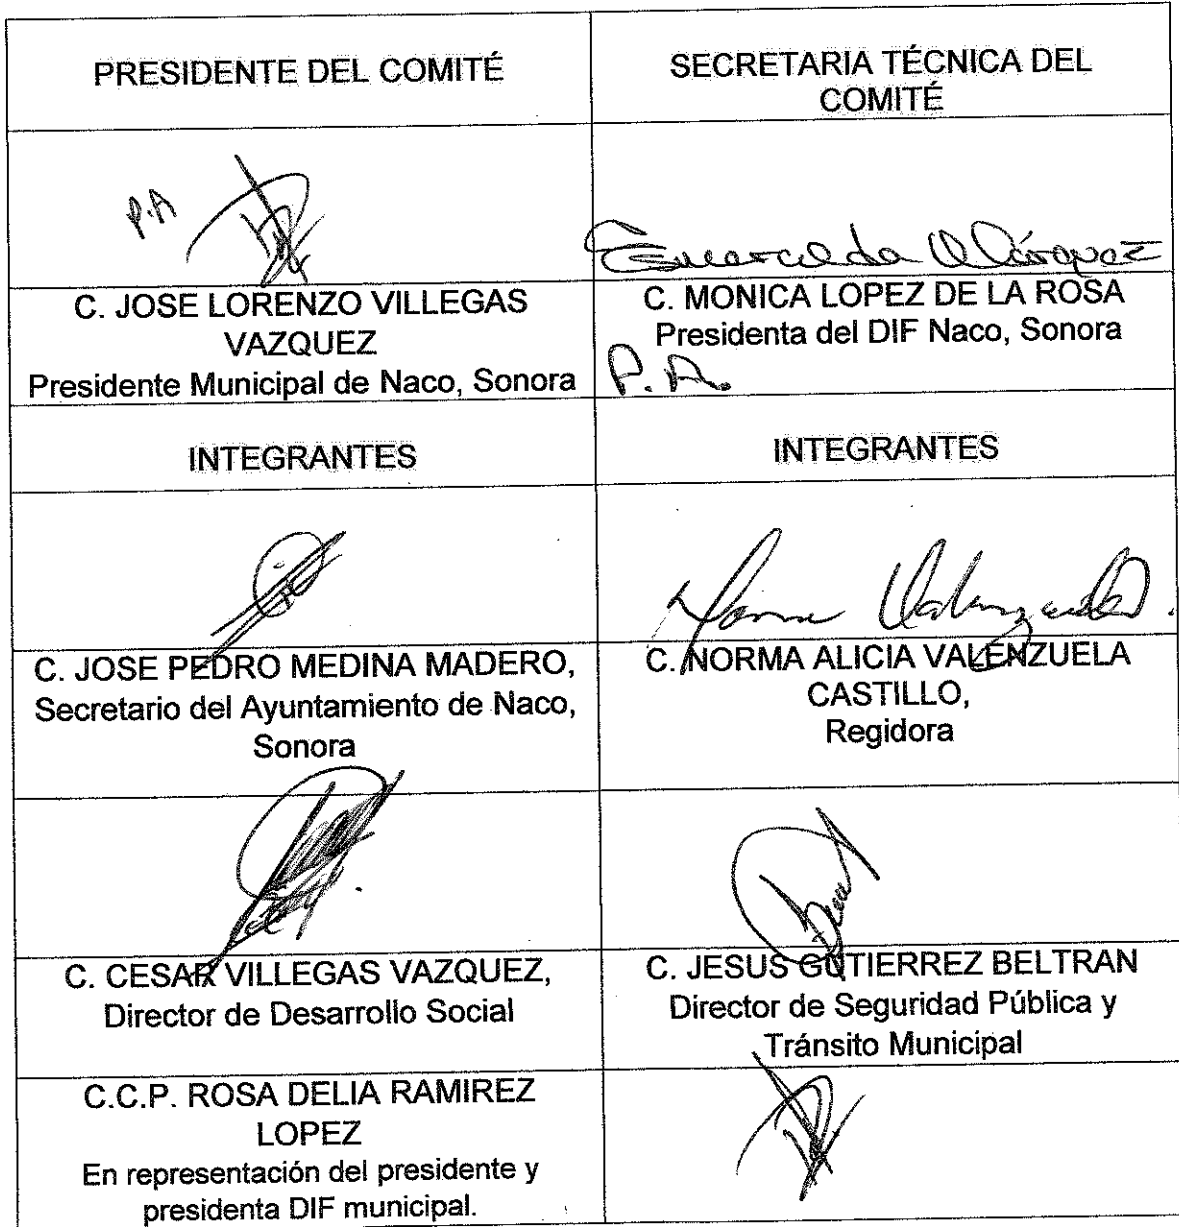 PRESIDENTE DEL COMITÉ
SECRETARIA TÉCNICA DEL
COMITÉ
P.A
Esmeralda Márquez
C. JOSE LORENZO VILLEGAS
VAZQUEZ
Presidente Municipal de Naco, Sonora
C. MONICA LOPEZ DE LA ROSA
Presidenta del DIF Naco, Sonora
P.A.
INTEGRANTES
INTEGRANTES
Norma Valenzuela
C. JOSE PEDRO MEDINA MADERO,
Secretario del Ayuntamiento de Naco,
Sonora
C. NORMA ALICIA VALENZUELA
CASTILLO,
Regidora
C. CESAR VILLEGAS VAZQUEZ,
Director de Desarrollo Social
C. JESUS GUTIERREZ BELTRAN
Director de Seguridad Pública y
Tránsito Municipal
C.C.P. ROSA DELIA RAMIREZ
LOPEZ
En representación del presidente y
presidenta DIF municipal.